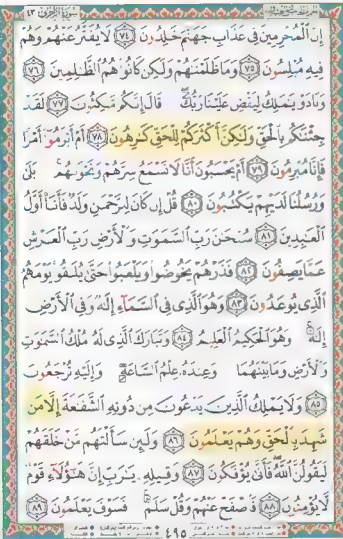 سُورَةُ الزُّخْرُفِ ٤٣
إِنَّ الْمُجْرِمِينَ فِي عَذَابِ جَهَنَّمَ خَٰلِدُونَ ٧٤ لَا يُفَتَّرُ عَنْهُمْ وَهُمْ
فِيهِ مُبْلِسُونَ ٧٥ وَمَا ظَلَمْنَٰهُمْ وَلَٰكِن كَانُوا هُمُ الظَّٰلِمِينَ ٧٦
وَنَادَوْا يَٰمَٰلِكُ لِيَقْضِ عَلَيْنَا رَبُّكَ ۖ قَالَ إِنَّكُم مَّٰكِثُونَ ٧٧ لَقَدْ
جِئْنَٰكُم بِالْحَقِّ وَلَٰكِنَّ أَكْثَرَكُمْ لِلْحَقِّ كَٰرِهُونَ ٧٨ أَمْ أَبْرَمُوا أَمْرًا
فَإِنَّا مُبْرِمُونَ ٧٩ أَمْ يَحْسَبُونَ أَنَّا لَا نَسْمَعُ سِرَّهُمْ وَنَجْوَىٰهُم ۚ بَلَىٰ
وَرُسُلُنَا لَدَيْهِمْ يَكْتُبُونَ ٨٠ قُلْ إِن كَانَ لِلرَّحْمَٰنِ وَلَدٌ فَأَنَا أَوَّلُ
الْعَٰبِدِينَ ٨١ سُبْحَٰنَ رَبِّ السَّمَٰوَٰتِ وَالْأَرْضِ رَبِّ الْعَرْشِ
عَمَّا يَصِفُونَ ٨٢ فَذَرْهُمْ يَخُوضُوا وَيَلْعَبُوا حَتَّىٰ يُلَٰقُوا يَوْمَهُمُ
الَّذِي يُوعَدُونَ ٨٣ وَهُوَ الَّذِي فِي السَّمَاءِ إِلَٰهٌ وَفِي الْأَرْضِ
إِلَٰهٌ ۚ وَهُوَ الْحَكِيمُ الْعَلِيمُ ٨٤ وَتَبَارَكَ الَّذِي لَهُ مُلْكُ السَّمَٰوَٰتِ
وَالْأَرْضِ وَمَا بَيْنَهُمَا وَعِندَهُ عِلْمُ السَّاعَةِ وَإِلَيْهِ تُرْجَعُونَ
٨٥ وَلَا يَمْلِكُ الَّذِينَ يَدْعُونَ مِن دُونِهِ الشَّفَٰعَةَ إِلَّا مَن
شَهِدَ بِالْحَقِّ وَهُمْ يَعْلَمُونَ ٨٦ وَلَئِن سَأَلْتَهُم مَّنْ خَلَقَهُمْ
لَيَقُولُنَّ اللَّهُ ۖ فَأَنَّىٰ يُؤْفَكُونَ ٨٧ وَقِيلِهِ يَٰرَبِّ إِنَّ هَٰؤُلَاءِ قَوْمٌ
لَّا يُؤْمِنُونَ ٨٨ فَاصْفَحْ عَنْهُمْ وَقُلْ سَلَٰمٌ ۚ فَسَوْفَ يَعْلَمُونَ ٨٩
٤٩٥